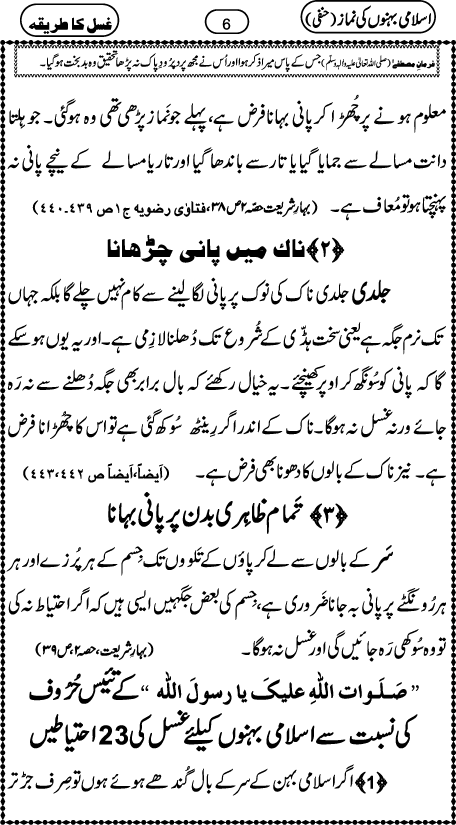 اسلامی بہنوں کی نماز (حنفی) 6 غسل کا طریقہ
فرمانِ مصطفٰے (صلی اللہ تعالیٰ علیہ والہٖ وسلم) جس کے پاس میرا ذکر ہوا اور اُس نے مجھ پر دُرودِ پاک نہ پڑھا تحقیق وہ بدبخت ہو گیا۔
معلوم ہونے پر چُھڑا کر پانی بہانا فرض ہے، پہلے جو نَماز پڑھی تھی وہ ہوگئی۔ جو ہِلتا
دانت مسالے سے جمایا گیا یا تار سے باندھا گیا اور تار یا مسالے کے نیچے پانی نہ
پہنچتا ہو تو مُعاف ہے۔ (بہارِ شریعت حصّہ ۲ ص ۳۸، فتاوٰی رضویہ ج۱ ص ۴۳۹۔۴۴۰)
﴿۲﴾ ناک میں پانی چڑھانا
جلدی جلدی ناک کی نوک پر پانی لگا لینے سے کام نہیں چلے گا بلکہ جہاں
تک نرم جگہ ہے یعنی سخت ہڈّی کے شُروع تک دُھلنا لازِمی ہے۔ اور یہ یوں ہو سکے
گا کہ پانی کو سُونگھ کر اوپر کھینچئے۔ یہ خیال رکھئے کہ بال برابر بھی جگہ دُھلنے سے نہ رَہ
جائے ورنہ غسل نہ ہوگا۔ ناک کے اندر اگر رِینٹھ سُوکھ گئی ہے تو اس کا چُھڑانا فرض
ہے۔ نیز ناک کے بالوں کا دھونا بھی فرض ہے۔ (اَیضاً، اَیضاً ص ۴۴۲، ۴۴۳)
﴿۳﴾ تَمام ظاہِری بدن پر پانی بہانا
سَر کے بالوں سے لے کر پاؤں کے تلووں تک جِسم کے ہر پُرزے اور ہر
ہر رُونگٹے پر پانی بہ جانا ضَروری ہے، جِسم کی بعض جگہیں ایسی ہیں کہ اگر احتیاط نہ کی
تو وہ سُوکھی رَہ جائیں گی اور غسل نہ ہوگا۔ (بہارِ شریعت، حصہ ۲، ص ۳۹)
”صَلَوات اللهِ عليكَ يا رسولَ الله“ کے تئیس حُرُوف
کی نسبت سے اسلامی بہنوں کیلئے غسل کی 23 احتیاطیں
﴿1﴾ اگر اسلامی بہن کے سر کے بال گُندھے ہوئے ہوں تو صِرف جڑ تر